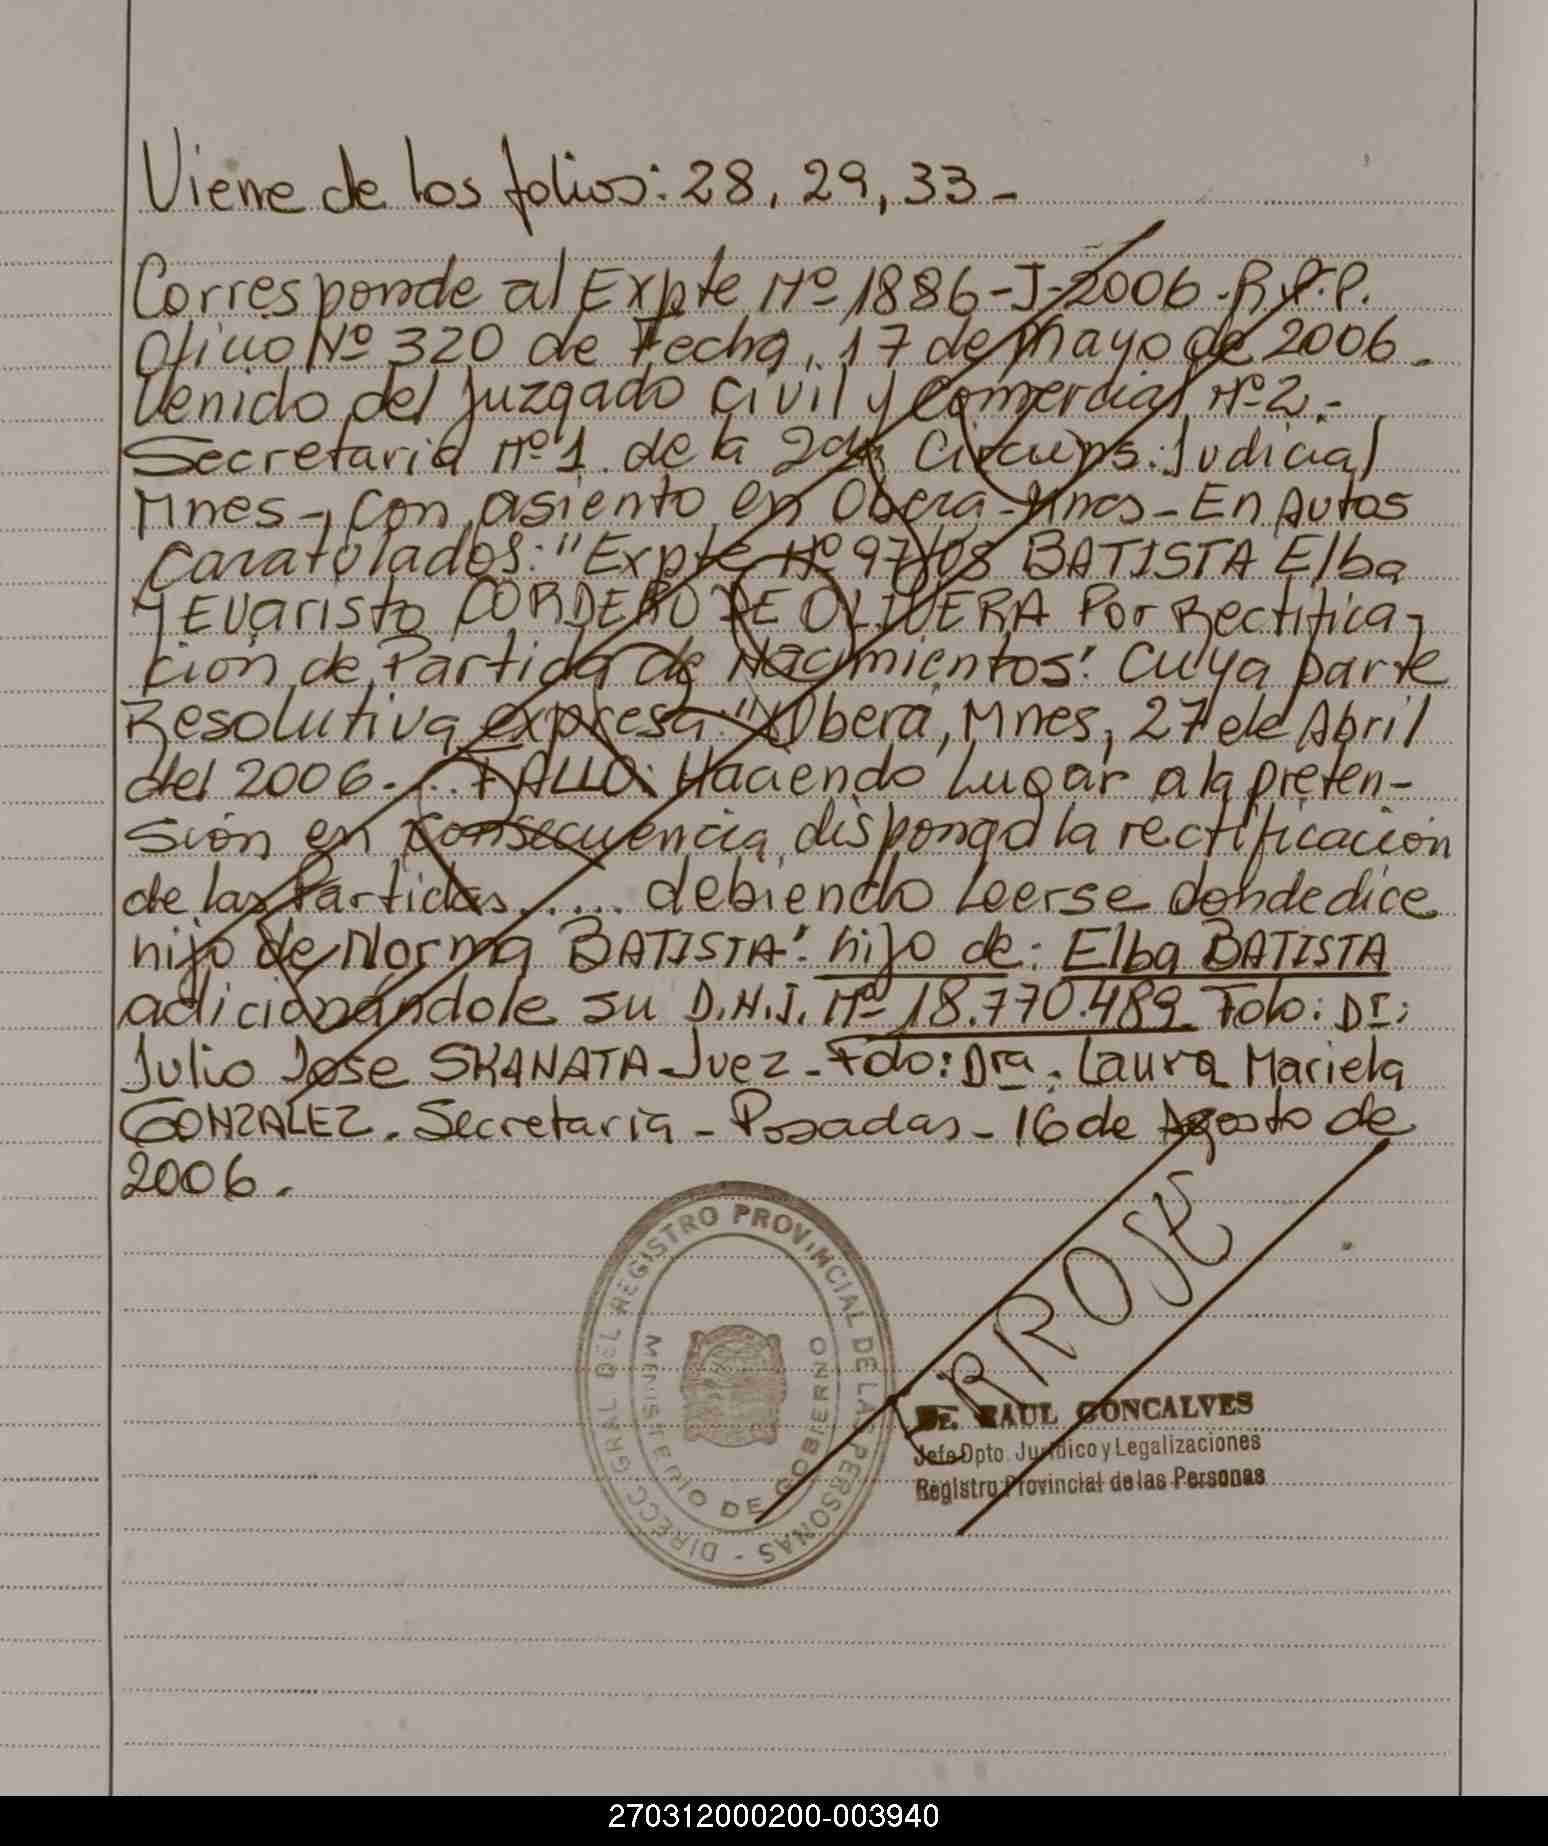 Viene de los folios: 28, 29, 33-
Corresponde al Expte Nº 1886-J-2006-R.P.P.
Oficio Nº 320 de Fecha, 17 de Mayo de 2006.
Venido del Juzgado Civil y Comercial Nº 2.-
Secretaria Nº 1 de la 2da Circuns. Judicial
Mnes-, con asiento en Obera-Mnes- En Autos
Caratulados: "Expte Nº 97/05 BATISTA Elba
Y Evaristo CORDERO DE OLIVERA Por Rectifica-
cion de Partida de Nacimientos". Cuya parte
Resolutiva expresa: "Obera, Mnes, 27 de Abril
del 2006-... FALLO: Haciendo Lugar a la preten-
sión en consecuencia, dispongo la rectificación
de las Partidas..... debiendo Leerse donde dice
hijo de Norma BATISTA": hijo de: Elba BATISTA
adicionándole su D.N.I. Nº 18.770.489 Fdo: Dr:
Julio Jose SKANATA-Juez-Fdo: Dra. Laura Mariela
GONZALEZ. Secretaria-Posadas-16 de Agosto de
2006.
DIRECC. GRAL DEL REGISTRO PROVINCIAL DE LAS PERSONAS -
MINISTERIO DE GOBIERNO
ERROSE
Dr. RAUL GONCALVES
Jefe Dpto. Jurídico y Legalizaciones
Registro Provincial de las Personas
270312000200-003940